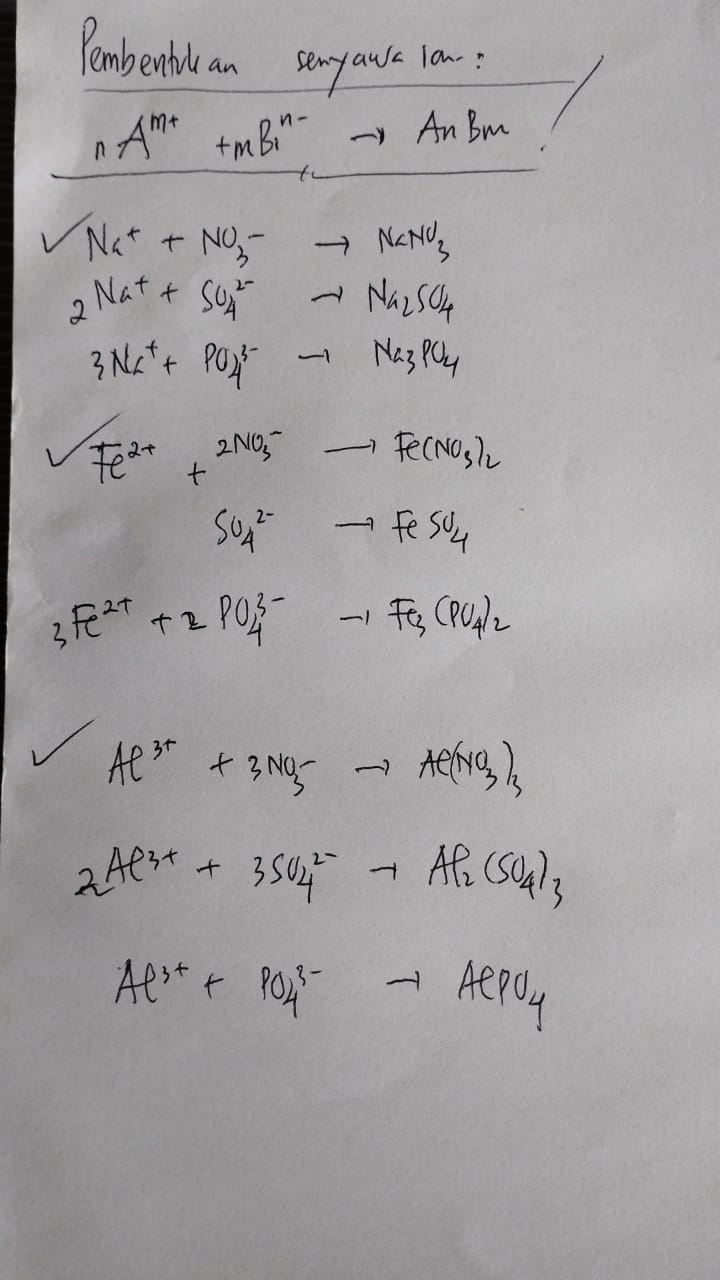 Pembentukan senyawa ion :
n Aᵐ⁺ + m Bⁿ⁻ → AnBm !
✓ Na⁺ + NO₃⁻ → NaNO₃
2 Na⁺ + SO₄²⁻ → Na₂SO₄
3 Na⁺ + PO₄³⁻ → Na₃PO₄
✓ Fe²⁺ + 2NO₃⁻ → Fe(NO₃)₂
SO₄²⁻ → FeSO₄
3 Fe²⁺ + 2 PO₄³⁻ → Fe₃(PO₄)₂
✓ Al³⁺ + 3 NO₃⁻ → Al(NO₃)₃
2 Al³⁺ + 3 SO₄²⁻ → Al₂(SO₄)₃
Al³⁺ + PO₄³⁻ → AlPO₄